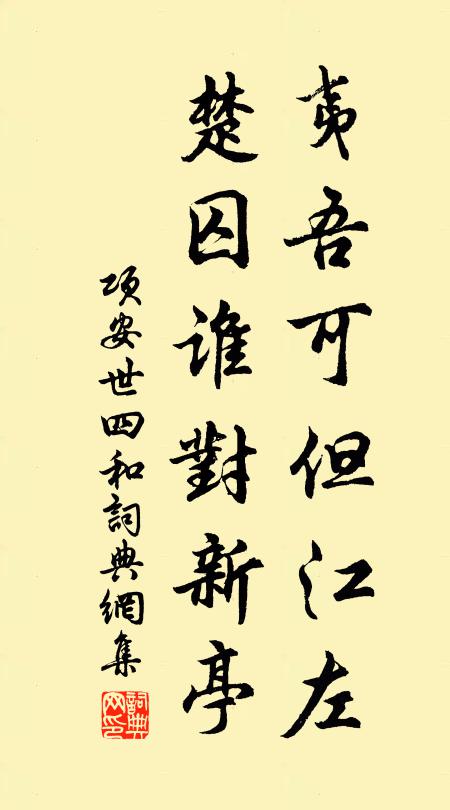 夷吾可但江左
楚囚誰對新亭
項安世四和詞典網集
詞典网印